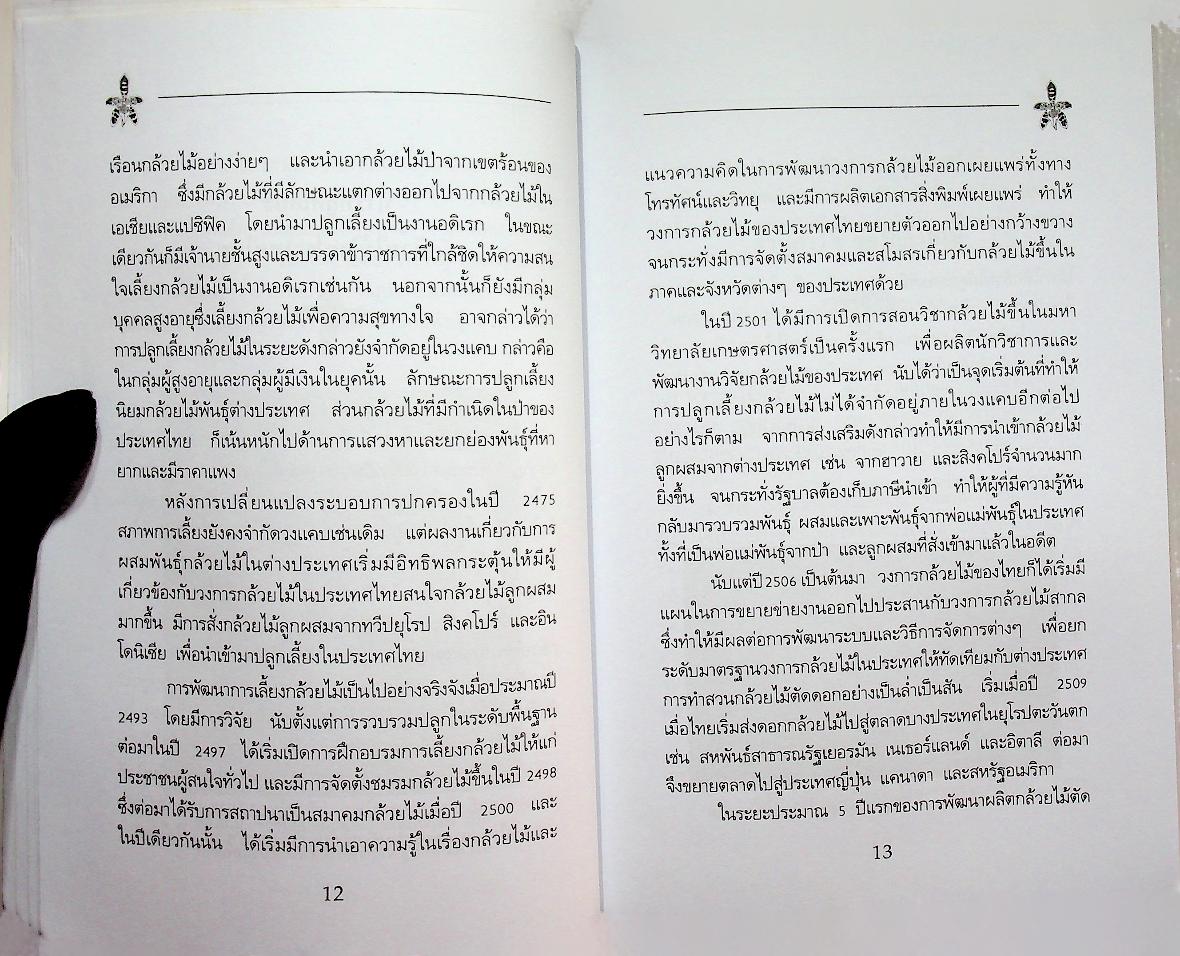 เรือนกล้วยไม้อย่างง่ายๆ และนำเอากล้วยไม้ป่าจากเขตร้อนของ
อเมริกา ซึ่งมีกล้วยไม้ที่มีลักษณะแตกต่างออกไปจากกล้วยไม้ใน
เอเซียและแปซิฟิค โดยนำมาปลูกเลี้ยงเป็นงานอดิเรก ในขณะ
เดียวกันก็มีเจ้านายชั้นสูงและบรรดาข้าราชการที่ใกล้ชิดให้ความสน
ใจเลี้ยงกล้วยไม้เป็นงานอดิเรกเช่นกัน นอกจากนั้นก็ยังมีกลุ่ม
บุคคลสูงอายุซึ่งเลี้ยงกล้วยไม้เพื่อความสุขทางใจ อาจกล่าวได้ว่า
การปลูกเลี้ยงกล้วยไม้ในระยะดังกล่าวยังจำกัดอยู่ในวงแคบ กล่าวคือ
ในกลุ่มผู้สูงอายุและกลุ่มผู้มีเงินในยุคนั้น ลักษณะการปลูกเลี้ยง
นิยมกล้วยไม้พันธุ์ต่างประเทศ ส่วนกล้วยไม้ที่มีกำเนิดในป่าของ
ประเทศไทย ก็เน้นหนักไปด้านการแสวงหาและยกย่องพันธุ์ที่หา
ยากและมีราคาแพง
หลังการเปลี่ยนแปลงระบอบการปกครองในปี 2475
สภาพการเลี้ยงยังคงจำกัดวงแคบเช่นเดิม แต่ผลงานเกี่ยวกับการ
ผสมพันธุ์กล้วยไม้ในต่างประเทศเริ่มมีอิทธิพลกระตุ้นให้มีผู้
เกี่ยวข้องกับวงการกล้วยไม้ในประเทศไทยสนใจกล้วยไม้ลูกผสม
มากขึ้น มีการสั่งกล้วยไม้ลูกผสมจากทวีปยุโรป สิงคโปร์ และอิน
โดนิเซีย เพื่อนำเข้ามาปลูกเลี้ยงในประเทศไทย
การพัฒนาการเลี้ยงกล้วยไม้เป็นไปอย่างจริงจังเมื่อประมาณปี
2493 โดยมีการวิจัย นับตั้งแต่การรวบรวมปลูกในระดับพื้นฐาน
ต่อมาในปี 2497 ได้เริ่มเปิดการฝึกอบรมการเลี้ยงกล้วยไม้ให้แก่
ประชาชนผู้สนใจทั่วไป และมีการจัดตั้งชมรมกล้วยไม้ขึ้นในปี 2498
ซึ่งต่อมาได้รับการสถาปนาเป็นสมาคมกล้วยไม้เมื่อปี 2500 และ
ในปีเดียวกันนั้น ได้เริ่มมีการนำเอาความรู้ในเรื่องกล้วยไม้และ
12
แนวความคิดในการพัฒนาวงการกล้วยไม้ออกเผยแพร่ทั้งทาง
โทรทัศน์และวิทยุ และมีการผลิตเอกสารสิ่งพิมพ์เผยแพร่ ทำให้
วงการกล้วยไม้ของประเทศไทยขยายตัวออกไปอย่างกว้างขวาง
จนกระทั่งมีการจัดตั้งสมาคมและสโมสรเกี่ยวกับกล้วยไม้ขึ้นใน
ภาคและจังหวัดต่างๆ ของประเทศด้วย
ในปี 2501 ได้มีการเปิดการสอนวิชากล้วยไม้ขึ้นในมหา
วิทยาลัยเกษตรศาสตร์เป็นครั้งแรก เพื่อผลิตนักวิชาการและ
พัฒนางานวิจัยกล้วยไม้ของประเทศ นับได้ว่าเป็นจุดเริ่มต้นที่ทำให้
การปลูกเลี้ยงกล้วยไม้ไม่ได้จำกัดอยู่ภายในวงแคบอีกต่อไป
อย่างไรก็ตาม จากการส่งเสริมดังกล่าวทำให้มีการนำเข้ากล้วยไม้
ลูกผสมจากต่างประเทศ เช่น จากฮาวาย และสิงคโปร์จำนวนมาก
ยิ่งขึ้น จนกระทั่งรัฐบาลต้องเก็บภาษีนำเข้า ทำให้ผู้ที่มีความรู้หัน
กลับมารวบรวมพันธุ์ ผสมและเพาะพันธุ์จากพ่อแม่พันธุ์ในประเทศ
ทั้งที่เป็นพ่อแม่พันธุ์จากป่า และลูกผสมที่สั่งเข้ามาแล้วในอดีต
นับแต่ปี 2506 เป็นต้นมา วงการกล้วยไม้ของไทยก็ได้เริ่มมี
แผนในการขยายข่ายงานออกไปประสานกับวงการกล้วยไม้สากล
ซึ่งทำให้มีผลต่อการพัฒนาระบบและวิธีการจัดการต่างๆ เพื่อยก
ระดับมาตรฐานวงการกล้วยไม้ในประเทศให้ทัดเทียมกับต่างประเทศ
การทำสวนกล้วยไม้ตัดดอกอย่างเป็นล่ำเป็นสัน เริ่มเมื่อปี 2509
เมื่อไทยเริ่มส่งดอกกล้วยไม้ไปสู่ตลาดบางประเทศในยุโรปตะวันตก
เช่น สหพันธ์สาธารณรัฐเยอรมัน เนเธอร์แลนด์ และอิตาลี ต่อมา
จึงขยายตลาดไปสู่ประเทศญี่ปุ่น แคนาดา และสหรัฐอเมริกา
ในระยะประมาณ 5 ปีแรกของการพัฒนาผลิตกล้วยไม้ตัด
13